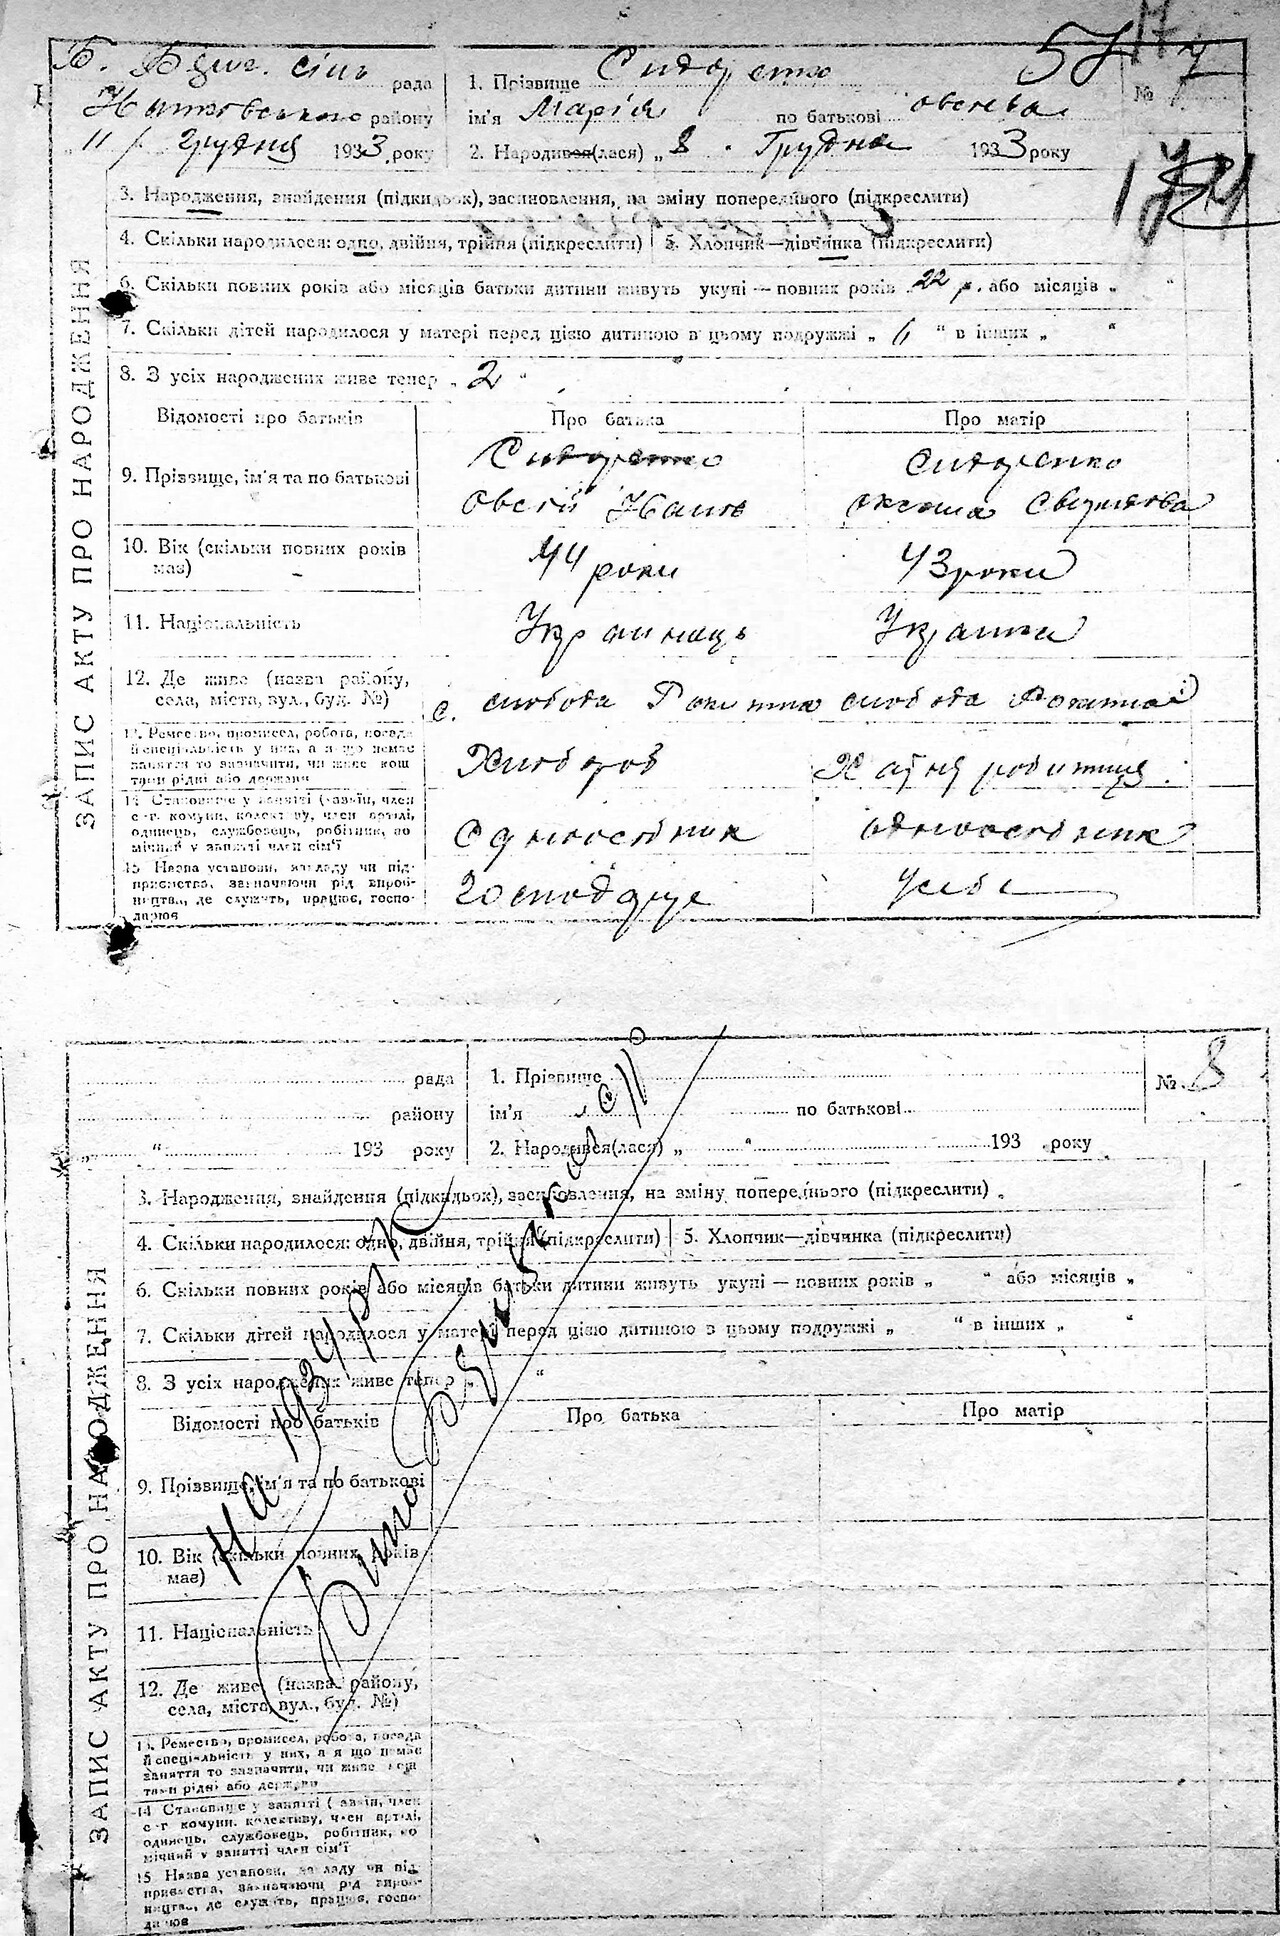 сіль рада
району
"11" Грудня 1933 року
1. Прізвище Сидоренко
ім'я Марія по батькові
2. Народився(лася) „8 Грудня 1933 року
№ 7
3. Народження, знайдення (підкидьок), засиновлення, на зміну попереднього (підкреслити)
4. Скільки народилося: одно, двійня, трійня (підкреслити) 5. Хлопчик—дівчинка (підкреслити)
6. Скільки повних років або місяців батьки дитини живуть укупі — повних років „22 р. або місяців „ “
7. Скільки дітей народилося у матері перед цією дитиною в цьому подружжі „ 6 “ в інших „ “
8. З усіх народжених живе тепер „ 2 “
Відомості про батьків Про батька Про матір
9. Прізвище, ім'я та по батькові
Сидоренко Сидоренко
10. Вік (скільки повних років має)
44 роки 43 роки
11. Національність Украинець Украинка
12. Де живе (назва району,
села, міста, вул., буд. №)
с. слобода слобода
13. Ремество, промисел, робота, посада
й спеціальність у них, а я що немає
заняття то зазначити, чи живе кош
тами рідні або держави
Хлібороб Хатня робитниця
14. Становище у занятті (хазяїн, член
с-г. комуни, колективу, член артілі,
одинець, службовець, робітник, по
мічний у занятті член сім'ї
Одноосібник одноосібник
15. Назва установи, закладу чи під-
приємства, зазначаючи рід вироб-
ництва, де служить, працює, госпо-
дарює
господарує у себе
ЗАПИС АКТУ ПРО НАРОДЖЕННЯ
рада
району
„ “ 193 року
1. Прізвище
ім'я по батькові
2. Народився(лася) „ “ 193 року
№ 8
3. Народження, знайдення (підкидьок), засиновлення, на зміну попереднього (підкреслити)
4. Скільки народилося: одно, двійня, трійня (підкреслити) 5. Хлопчик—дівчинка (підкреслити)
6. Скільки повних років або місяців батьки дитини живуть укупі — повних років „ “ або місяців „ “
7. Скільки дітей народилося у матері перед цією дитиною в цьому подружжі „ “ в інших „ “
8. З усіх народжених живе тепер „ “
Відомості про батьків Про батька Про матір
9. Прізвище, ім'я та по батькові
10. Вік (скільки повних років
має)
11. Національність
12. Де живе (назва району,
села, міста, вул., буд. №)
13. Ремество, промисел, робота, посада
й спеціальність у них, а я що немає
заняття то зазначити, чи живе кош
тами рідні або держави
14. Становище у занятті (хазяїн, член
с-г комуни, колективу, член артілі,
одинець, службовець, робітник, по
мічний у занятті член сім'ї
15. Назва установи, закладу чи під-
приємства, зазначаючи рід вироб-
ництва, де служить, працює, госпо-
дарює
ЗАПИС АКТУ ПРО НАРОДЖЕННЯ
На 1934 рік